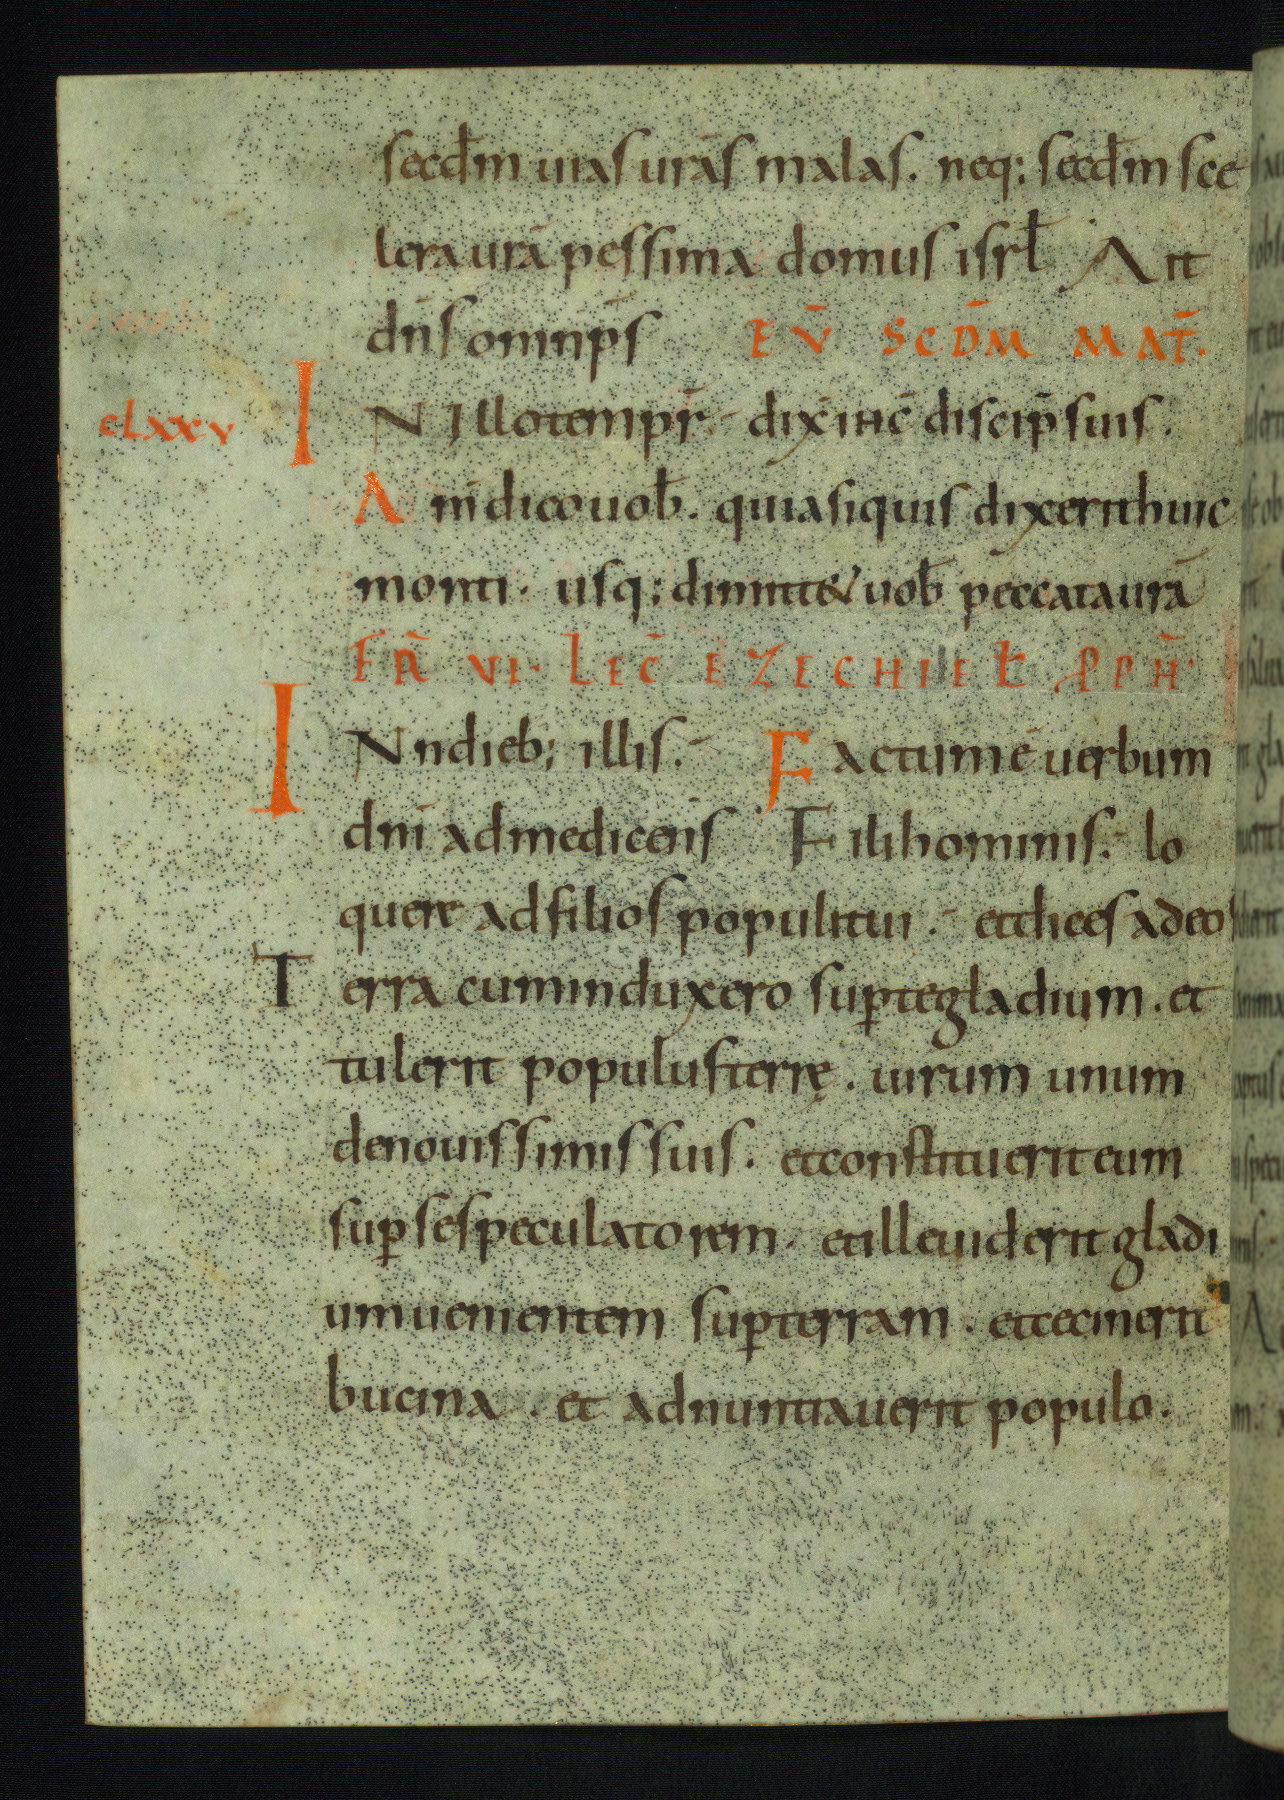 secd̄m uias urās malas. neq; secd̄m sce
lera urā pessima domus isrl̄ Ait
dn̄s omnip̄s EV̄ SCD̄M MAT̄.
CLXXV IN Illo tempr̄ dix̄ ihc̄ discip̄ suis.
Am̄ dico uob̄. quia siquis dixerit huic
monti. usq; dimittet uob̄ peccata urā
FR̄ VI. LEC̄ EZECHIEL̄ PPH̄.
IN ndieb; illis. Factum ē uerbum
dn̄i ad me dicens Fili hominis. lo
quere ad filios populi tui. et dices ad eos
Terra cum induxero sup̄ te gladium. et
tulerit populus terrę. uirum unum
de nouissimis suis. et constituerit eum
sup̄ se speculatorem. et ille uiderit gladi
um uenientem sup̄ terram. et cecinerit
bucina. et adnuntiauerit populo.